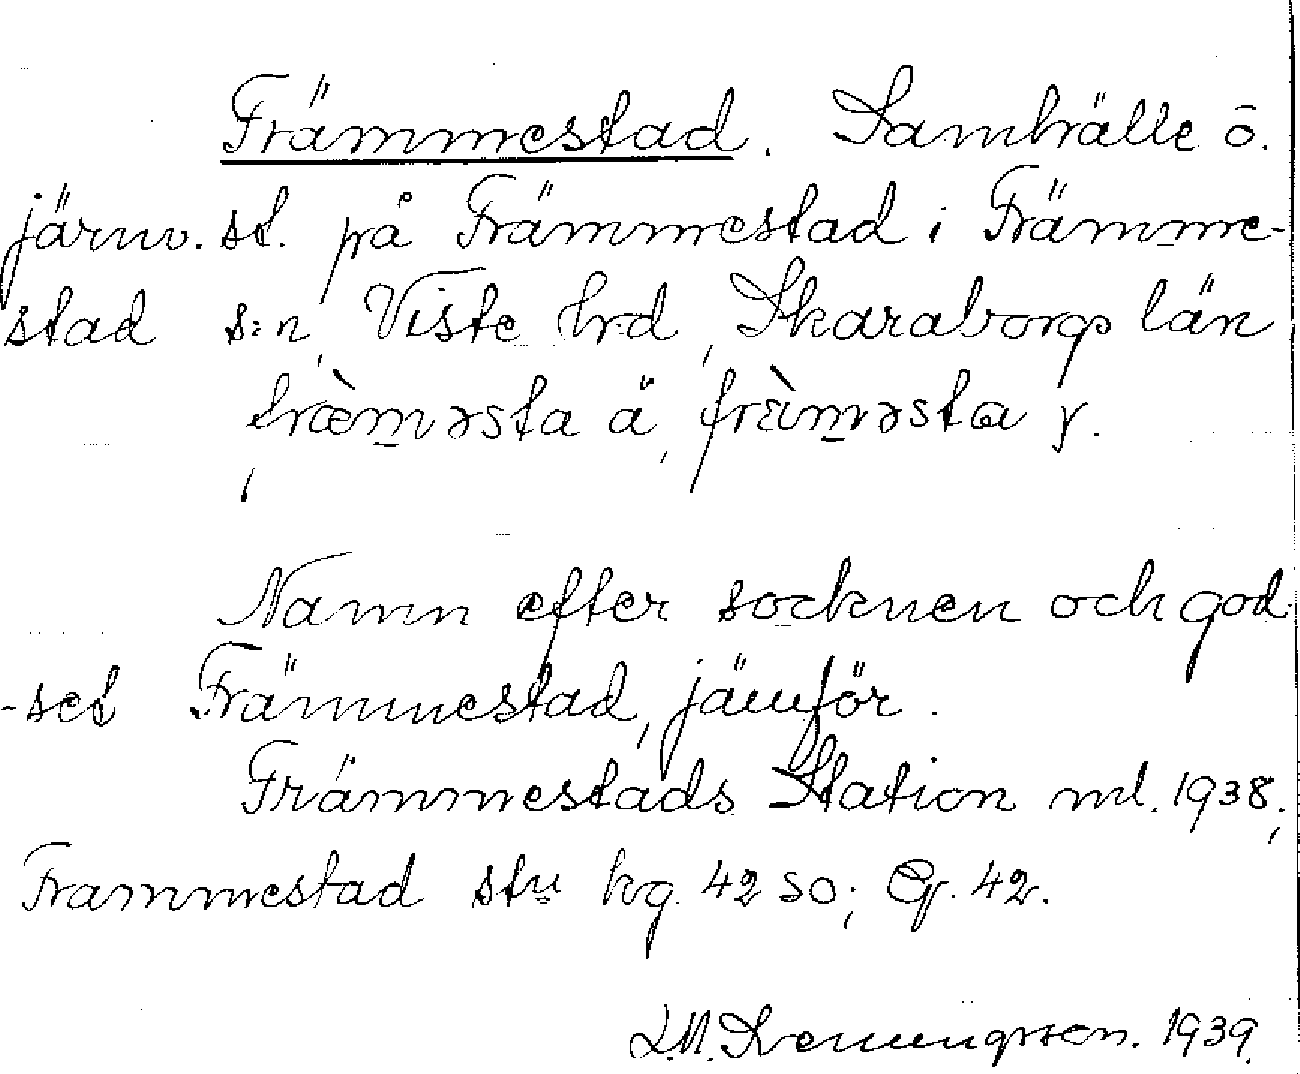 Främmestad. Samhälle o.
järnv. st. på Främmestad i Främme-
stad s:n, Viste hrd, Skaraborgs län
fræ̀məsta ä, frä̀məsta y.
Namn efter socknen och god
-set Främmestad, jämför.
Främmestads Station ml. 1938;
Frammestad stn kg. 42 SO; Gf. 42.
1939.